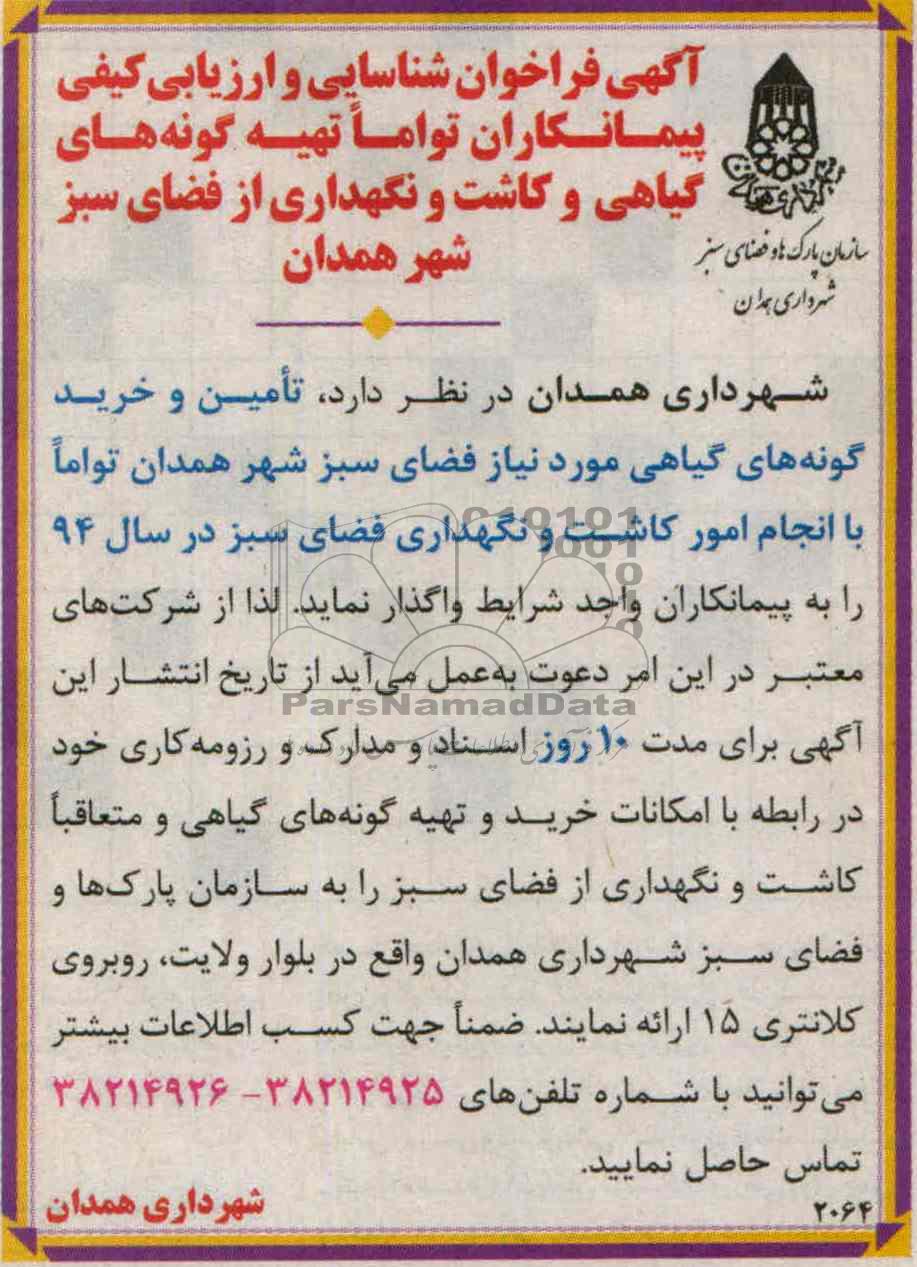 آگهی فراخوان شناسایی و ارزیابی کیفی
پیمانکاران تواماً تهیه گونه‌های
گیاهی و کاشت و نگهداری از فضای سبز
شهر همدان
شهرداری همدان
سازمان پارک‌ها و فضای سبز
شهرداری همدان
شهرداری همدان در نظر دارد، تأمین و خرید
گونه‌های گیاهی مورد نیاز فضای سبز شهر همدان تواماً
با انجام امور کاشت و نگهداری فضای سبز در سال ۹۴
را به پیمانکاران واجد شرایط واگذار نماید. لذا از شرکت‌های
معتبر در این امر دعوت به‌عمل می‌آید از تاریخ انتشار این
آگهی برای مدت ۱۰ روز اسناد و مدارک و رزومه‌کاری خود
در رابطه با امکانات خرید و تهیه گونه‌های گیاهی و متعاقباً
کاشت و نگهداری از فضای سبز را به سازمان پارک‌ها و
فضای سبز شهرداری همدان واقع در بلوار ولایت، روبروی
کلانتری ۱۵ ارائه نمایند. ضمناً جهت کسب اطلاعات بیشتر
می‌توانید با شماره تلفن‌های ۳۸۲۱۴۹۲۵ - ۳۸۲۱۴۹۲۶
تماس حاصل نمایید.
شهرداری همدان
۲۰۶۴
ParsNamadData